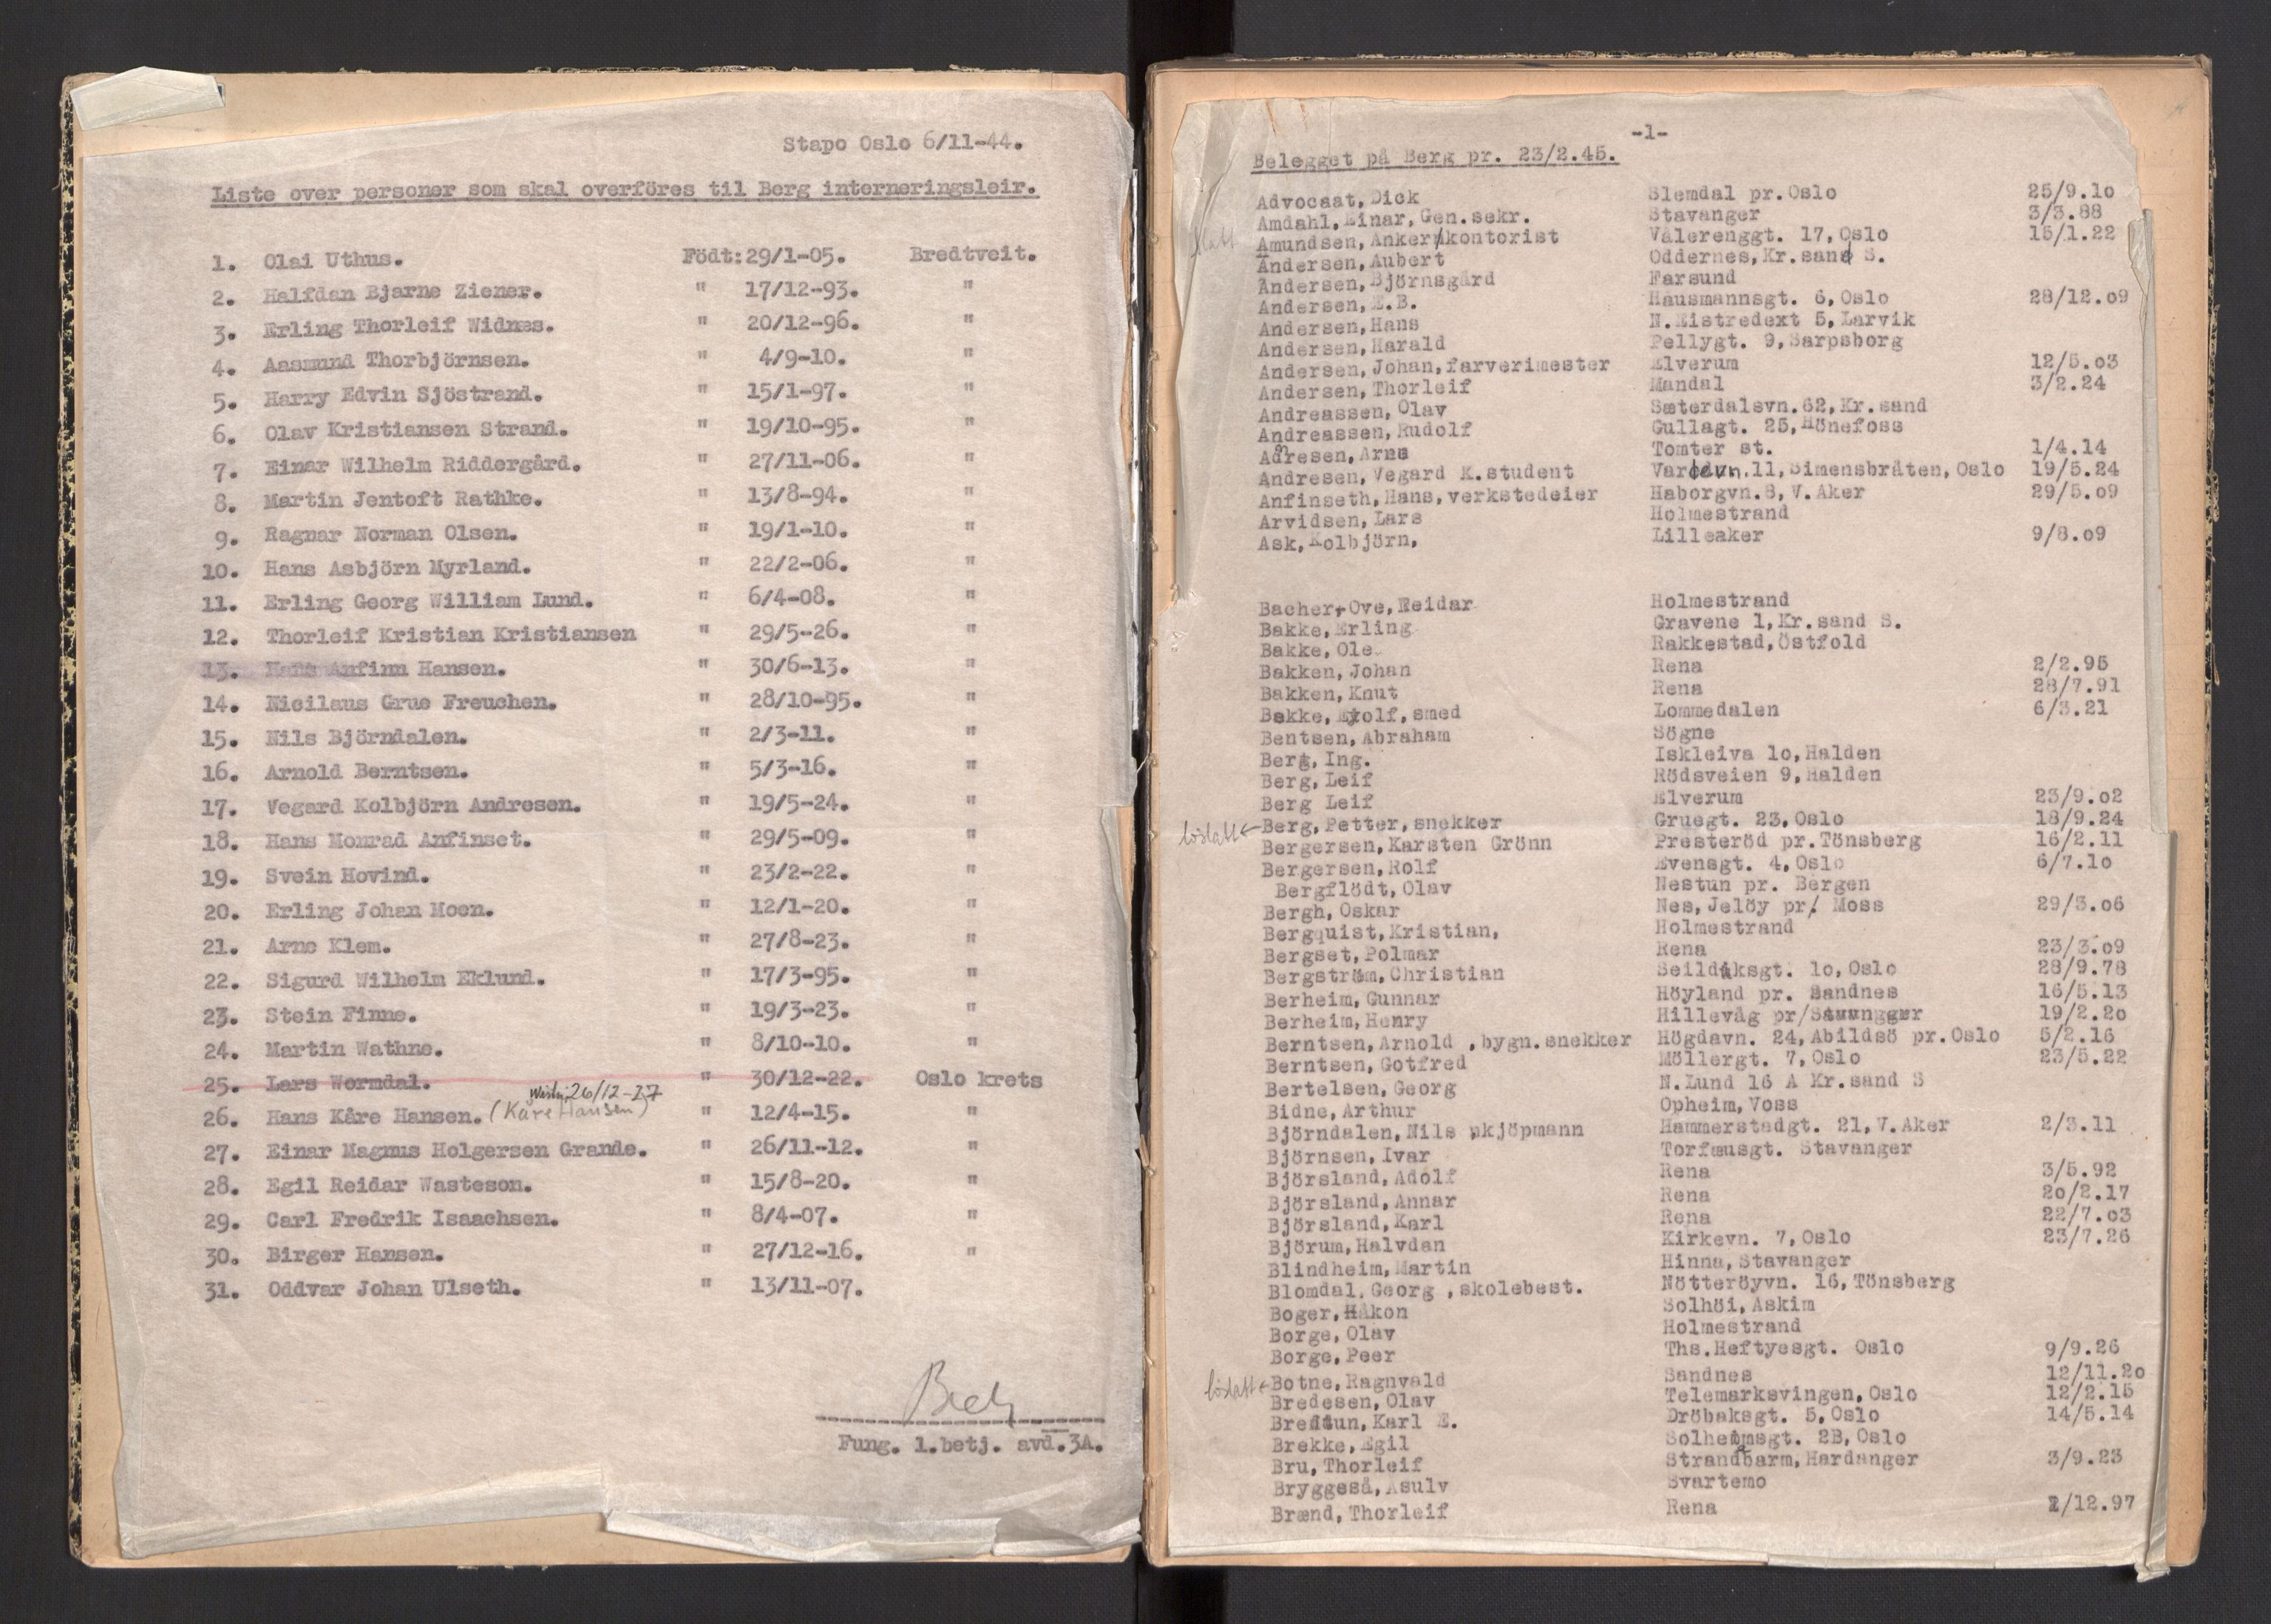 Stapo Oslo 6/11-44.
Liste over personer som skal overföres til Berg interneringsleir.
1. Olai Uthus. Födt: 29/1-05. Bredtveit.
2. Halfdan Bjarne Ziener. " 17/12-93. "
3. Erling Thorleif Widnes. " 20/12-96. "
4. Aasmund Thorbjörnsen. " 4/9-10. "
5. Harry Edvin Sjöstrand. " 15/1-97. "
6. Olav Kristiansen Strand. " 19/10-95. "
7. Einar Wilhelm Riddergård. " 27/11-06. "
8. Martin Jentoft Rathke. " 13/8-94. "
9. Ragnar Norman Olsen. " 19/1-10. "
10. Hans Asbjörn Myrland. " 22/2-06. "
11. Erling Georg William Lund. " 6/4-08. "
12. Thorleif Kristian Kristiansen " 29/5-26. "
13. Hans Anfinn Hansen. " 30/6-13. "
14. Nicilaus Grue Freuchen. " 28/10-95. "
15. Nils Björndalen. " 2/3-11. "
16. Arnold Berntsen. " 5/3-16. "
17. Vegard Kolbjörn Andresen. " 19/5-24. "
18. Hans Monrad Anfinset. " 29/5-09. "
19. Svein Hovind. " 23/2-22. "
20. Erling Johan Moen. " 12/1-20. "
21. Arne Klem. " 27/8-23. "
22. Sigurd Wilhelm Eklund. " 17/3-95. "
23. Stein Finne. " 19/3-23. "
24. Martin Wathne. " 8/10-10. "
25. Lars Wormdal. " 30/12-22. Oslo krets
26/12-17
26. Hans Kåre Hansen. (Kåre Hansen) " 12/4-15. "
27. Einar Magnus Holgersen Grande. " 26/11-12. "
28. Egil Reidar Wasteson. " 15/8-20. "
29. Carl Fredrik Isaachsen. " 8/4-07. "
30. Birger Hansen. " 27/12-16. "
31. Oddvar Johan Ulseth. " 13/11-07.
Fung. 1.betj. avd.3A.
-1-
Belegget på Berg pr. 23/2.45.
Advocaat, Dick Slemdal pr. Oslo 25/9.10
Amdahl, Einar, Gen.sekr. Stavanger 3/3.88
Amundsen, Anker/kontorist Vålerenggt. 17, Oslo 15/1.22
Andersen, Aubert Oddernes, Kr.sand S.
Andersen, Björnsgård Farsund
Andersen, E.B. Hausmannsgt. 6, Oslo 28/12.09
Andersen, Hans N.Eistredext 5, Larvik
Andersen, Harald Pellygt. 9, Sarpsborg
Andersen, Johan, farverimester Elverum 12/5.03
Andersen, Thorleif Mandal 3/2.24
Andreassen, Olav Sæterdalsvn.62, Kr.sand
Andreassen, Rudolf Gullagt. 25, Hönefoss
Adresen, Arne Tomter st. 1/4.14
Andresen, Vegard K.student Vardevn.11, Simensbråten, Oslo 19/5.24
Anfinseth, Hans, verkstedeier Haborgvn.8, V.Aker 29/5.09
Arvidsen, Lars Holmestrand
Ask, Kolbjörn, Lilleaker 9/8.09
Bacher, Ove, Reidar Holmestrand
Bakke, Erling Gravene 1, Kr.sand S.
Bakke, Ole Rakkestad, Östfold
Bakken, Johan Rena 2/2.95
Bakken, Knut Rena 28/7.91
Bakke, Eyolf, smed Lommedalen 6/3.21
Bentsen, Abraham Sögne
Berg, Ing. Iskleiva 10, Halden
Berg, Leif Rödsveien 9, Halden
Berg Leif Elverum 23/9.02
löslatt ← Berg, Petter, snekker Gruegt. 23, Oslo 18/9.24
Bergersen, Karsten Grönn Presteröd pr. Tönsberg 16/2.11
Bergersen, Rolf Evensgt. 4, Oslo 6/7.10
Bergflödt, Olav Nestun pr. Bergen
Bergh, Oskar Nes, Jelöy pr/ Moss 29/3.06
Bergquist, Kristian, Holmestrand
Bergset, Polmar Rena 23/3.09
Bergström, Christian Seilduksgt. 10, Oslo 28/9.78
Berheim, Gunnar Höyland pr. Sandnes 16/5.13
Berheim, Henry Hillevåg pr/ 19/2.20
Berntsen, Arnold , bygn.snekker Högdavn. 24, Abildsö pr. Oslo 5/2.16
Berntsen, Gotfred Möllergt. 7, Oslo 23/5.22
Bertelsen, Georg N.Lund 16 A Kr.sand S
Bidne, Arthur Opheim, Voss
Björndalen, Nils ,kjöpmann Hammerstadgt. 21, V.Aker 2/3.11
Björnsen, Ivar Torfæusgt. Stavanger
Björsland, Adolf Rena 3/5.92
Björsland, Annar Rena 20/2.17
Björsland, Karl Rena 22/7.03
Björum, Halvdan Kirkevn. 7, Oslo 23/7.26
Blindheim, Martin Hinna, Stavanger
Blomdal, Georg , skolebest. Nötteröyvn. 16, Tönsberg
Boger, Håkon Solhöi, Askim
Borge, Olav Holmestrand
Borge, Peer Ths.Heftyesgt. Oslo 9/9.26
löslatt ← Botne, Ragnvald Sandnes 12/11.20
Bredesen, Olav Telemarksvingen, Oslo 12/2.15
Bredtun, Karl E. Dröbaksgt. 5, Oslo 14/5.14
Brekke, Egil Solheimsgt. 2B, Oslo
Bru, Thorleif Strandbarm, Hardanger 3/9.23
Bryggeså, Asulv Svartemo
Brænd, Thorleif Rena 1/12.97